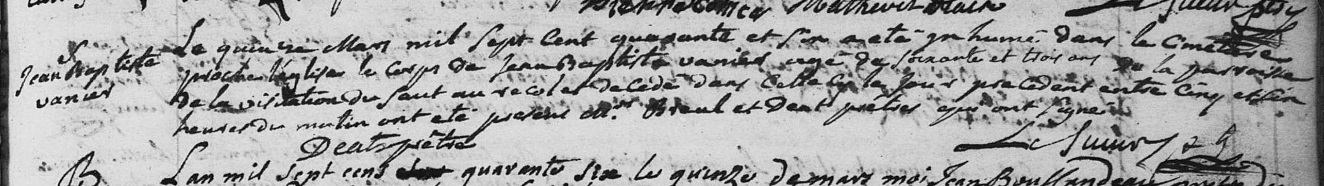 Le Sueur
S
Jean Baptiste
vanier
Le quinze Mars mil sept Cent quarante et six a eté inhumé dans le Cimetiere
proche l'église le corps de Jean Baptiste vanier agé de soixante et trois ans de la parroisse
de la visitation du Saut au recolet decedé dans Celle cy le Jour precedent entre Cinq et six
heures du matin ont eté presens Mrs Breul et Deat prêtres qui ont signé
Deat prêtre
Le Sueur
B
Lan mil sept cens quarante six le quinze de mars moi Jean